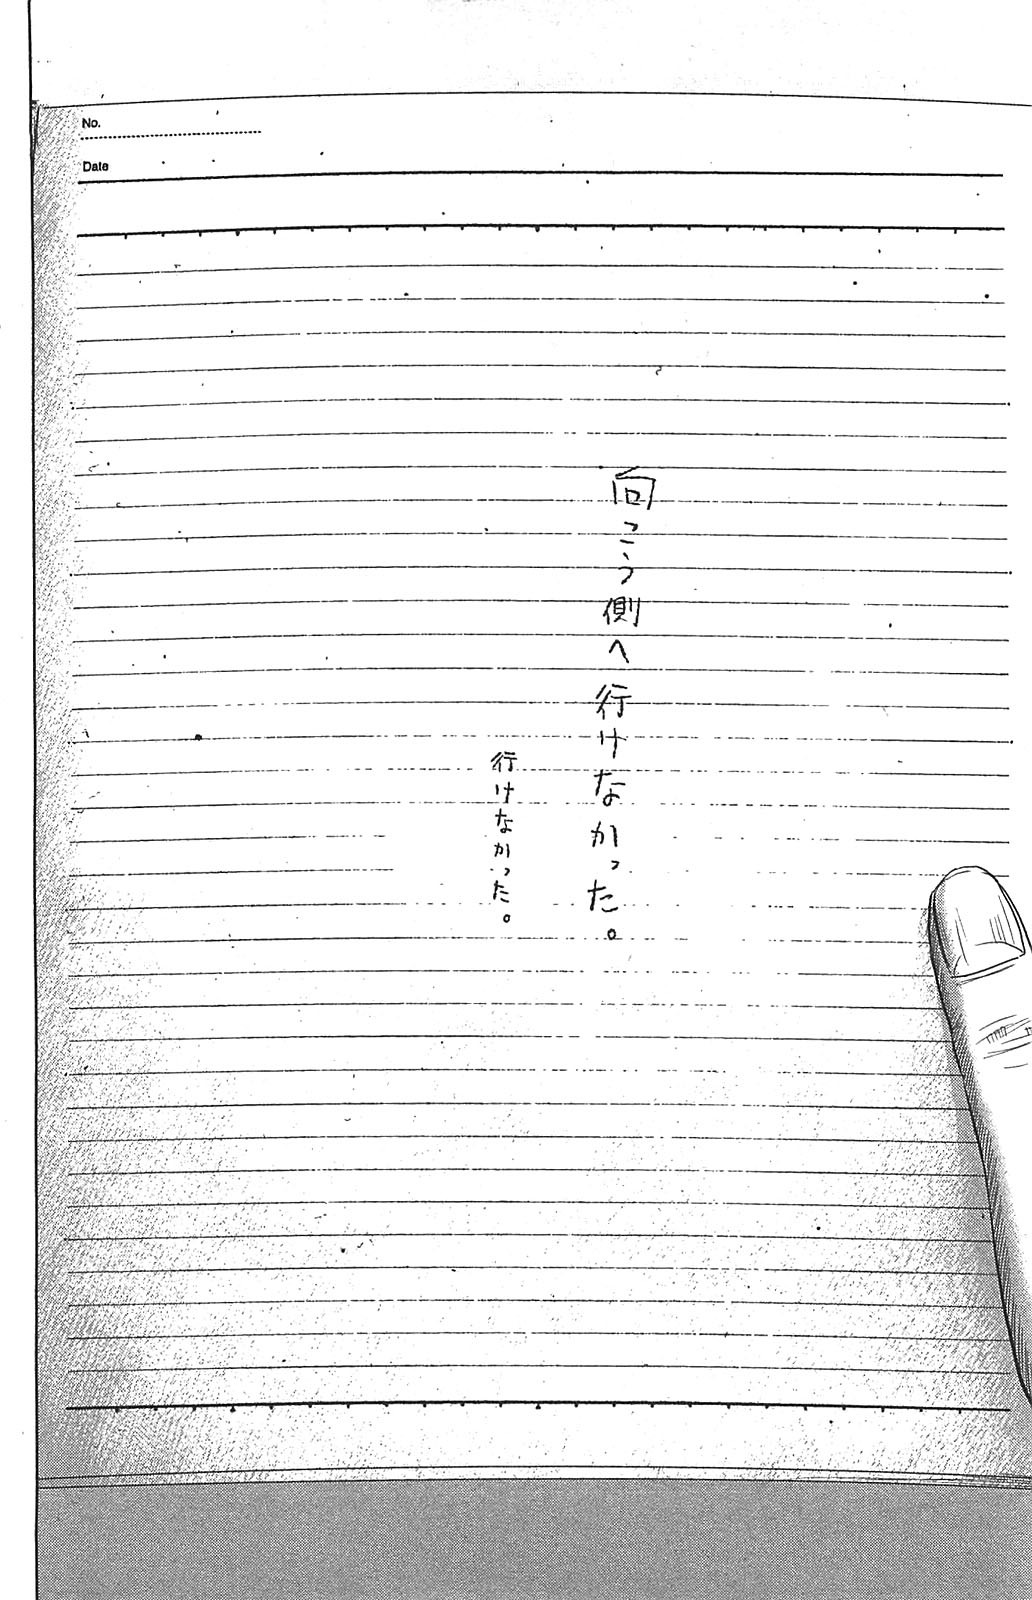 No.
Date
向こう側へ行けなかった。
行けなかった。